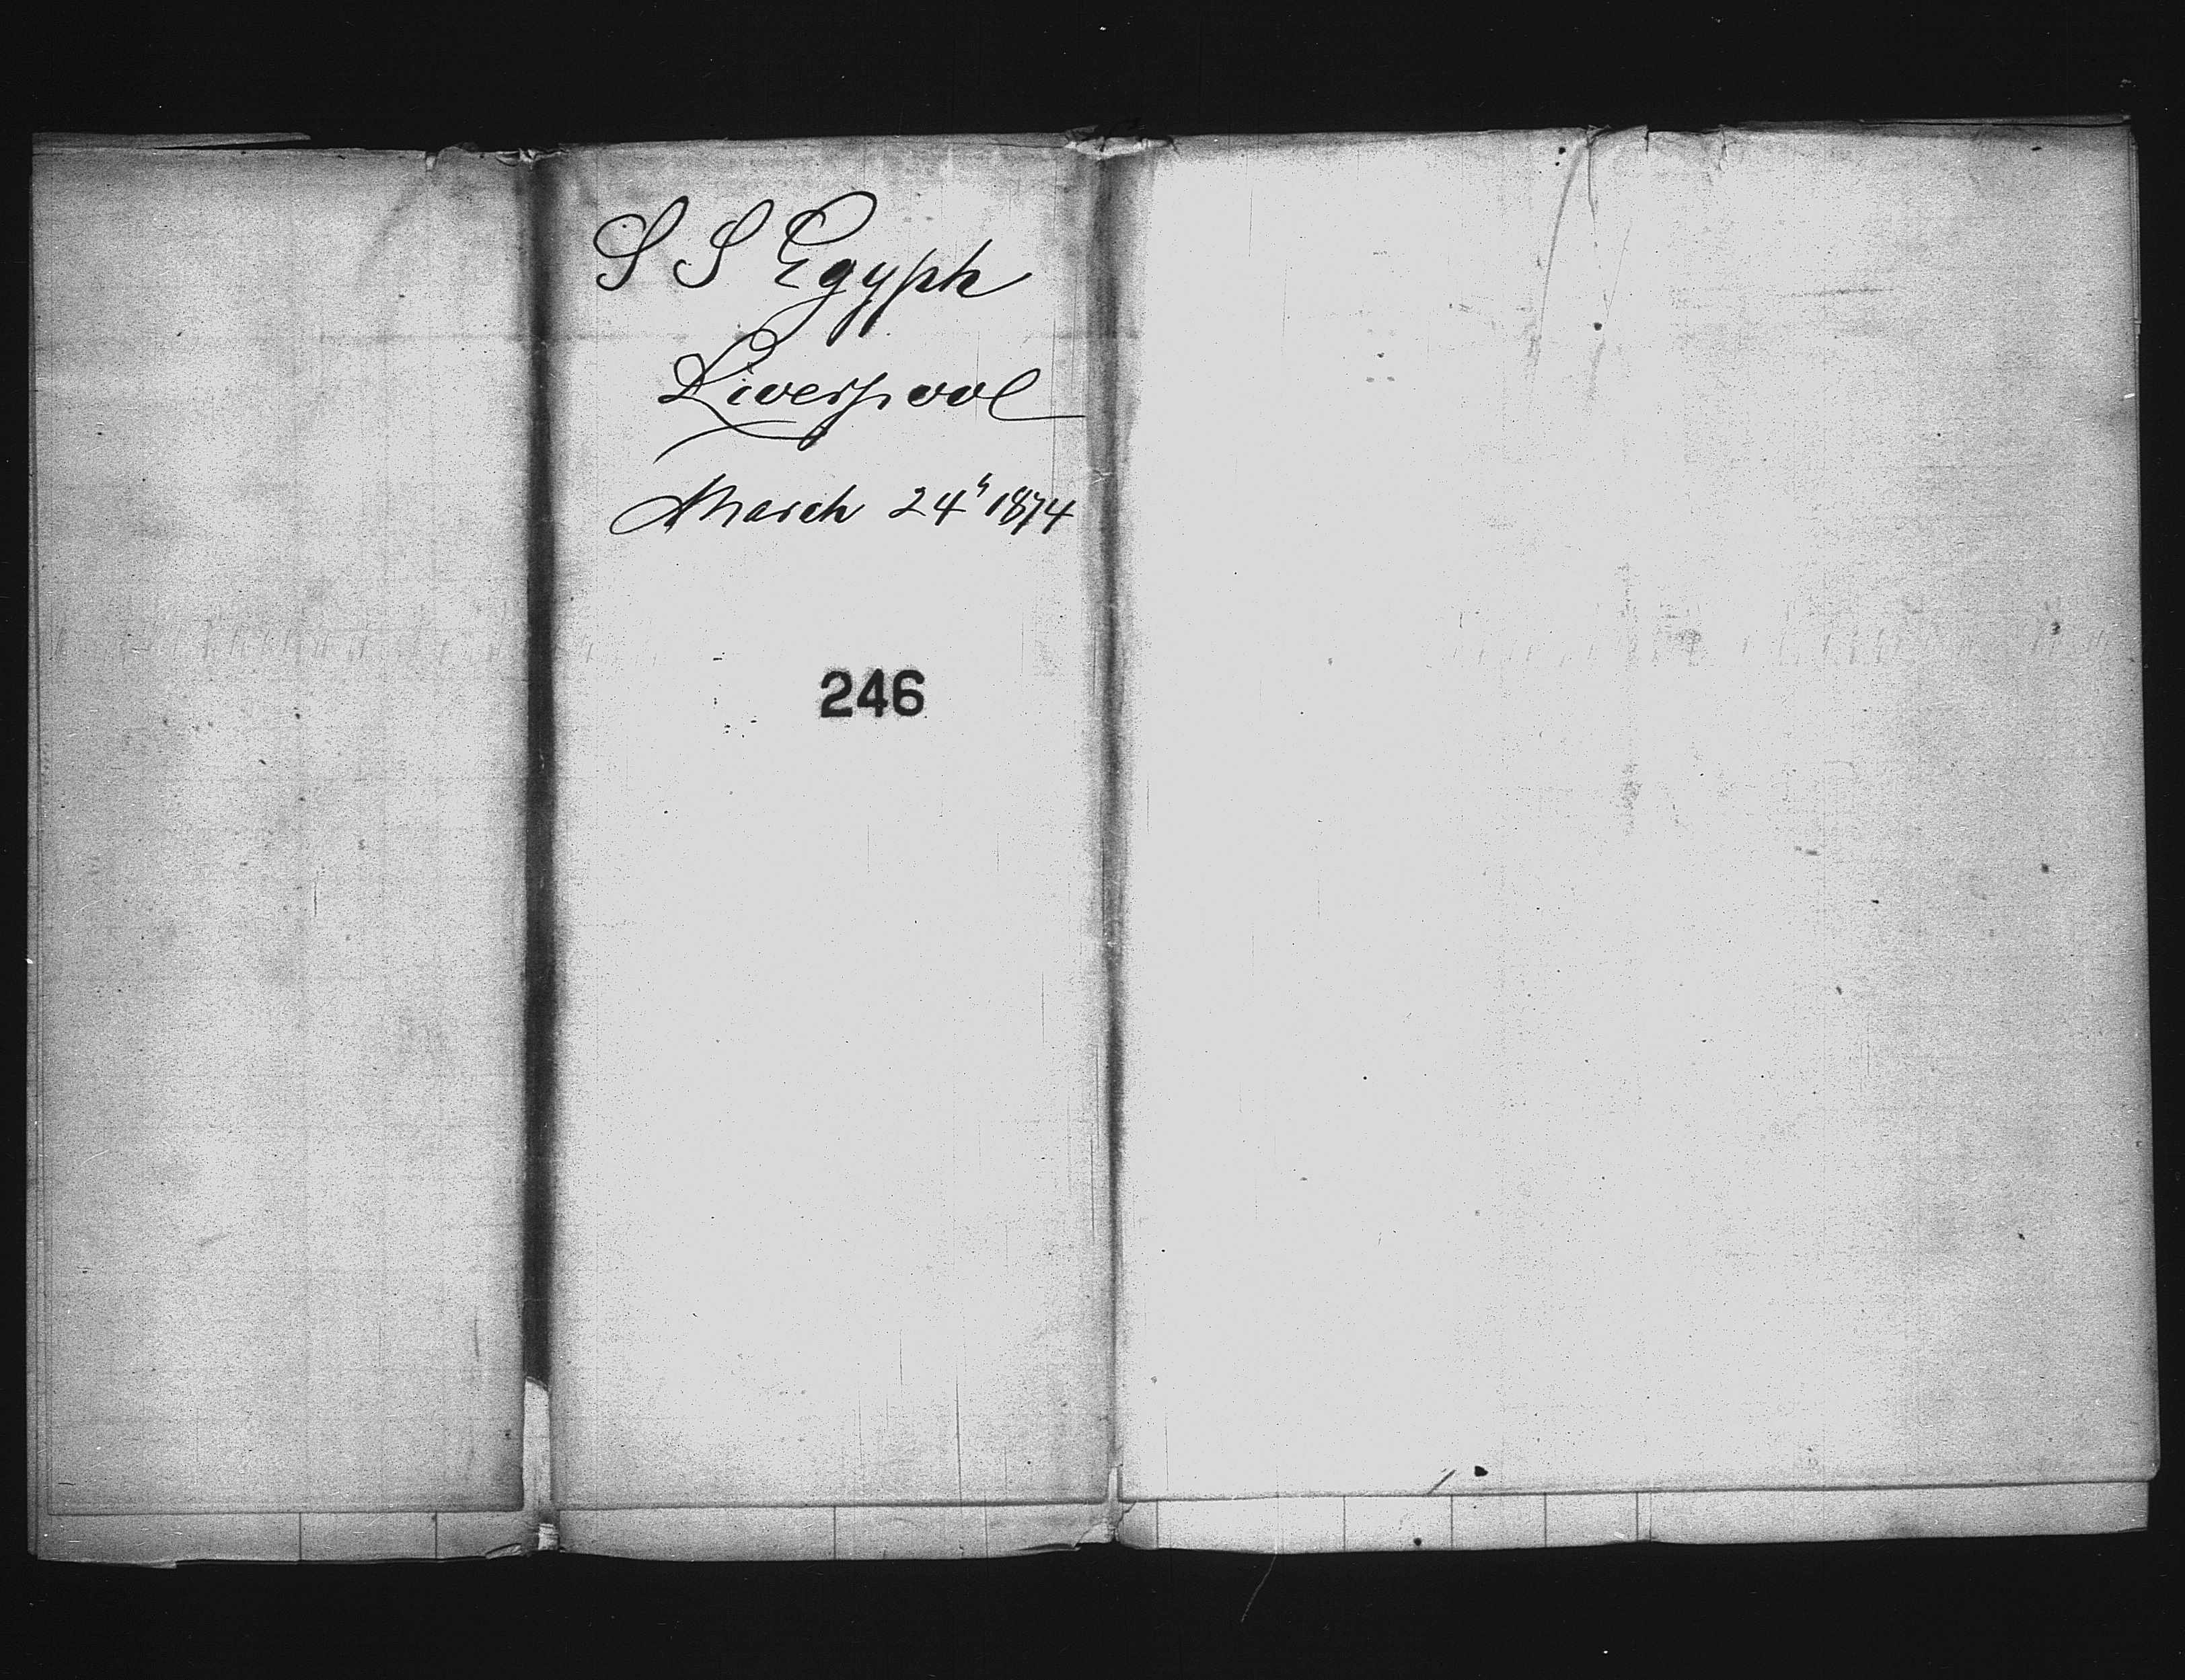 S S Egypt
Liverpool
March 24th 1874
246